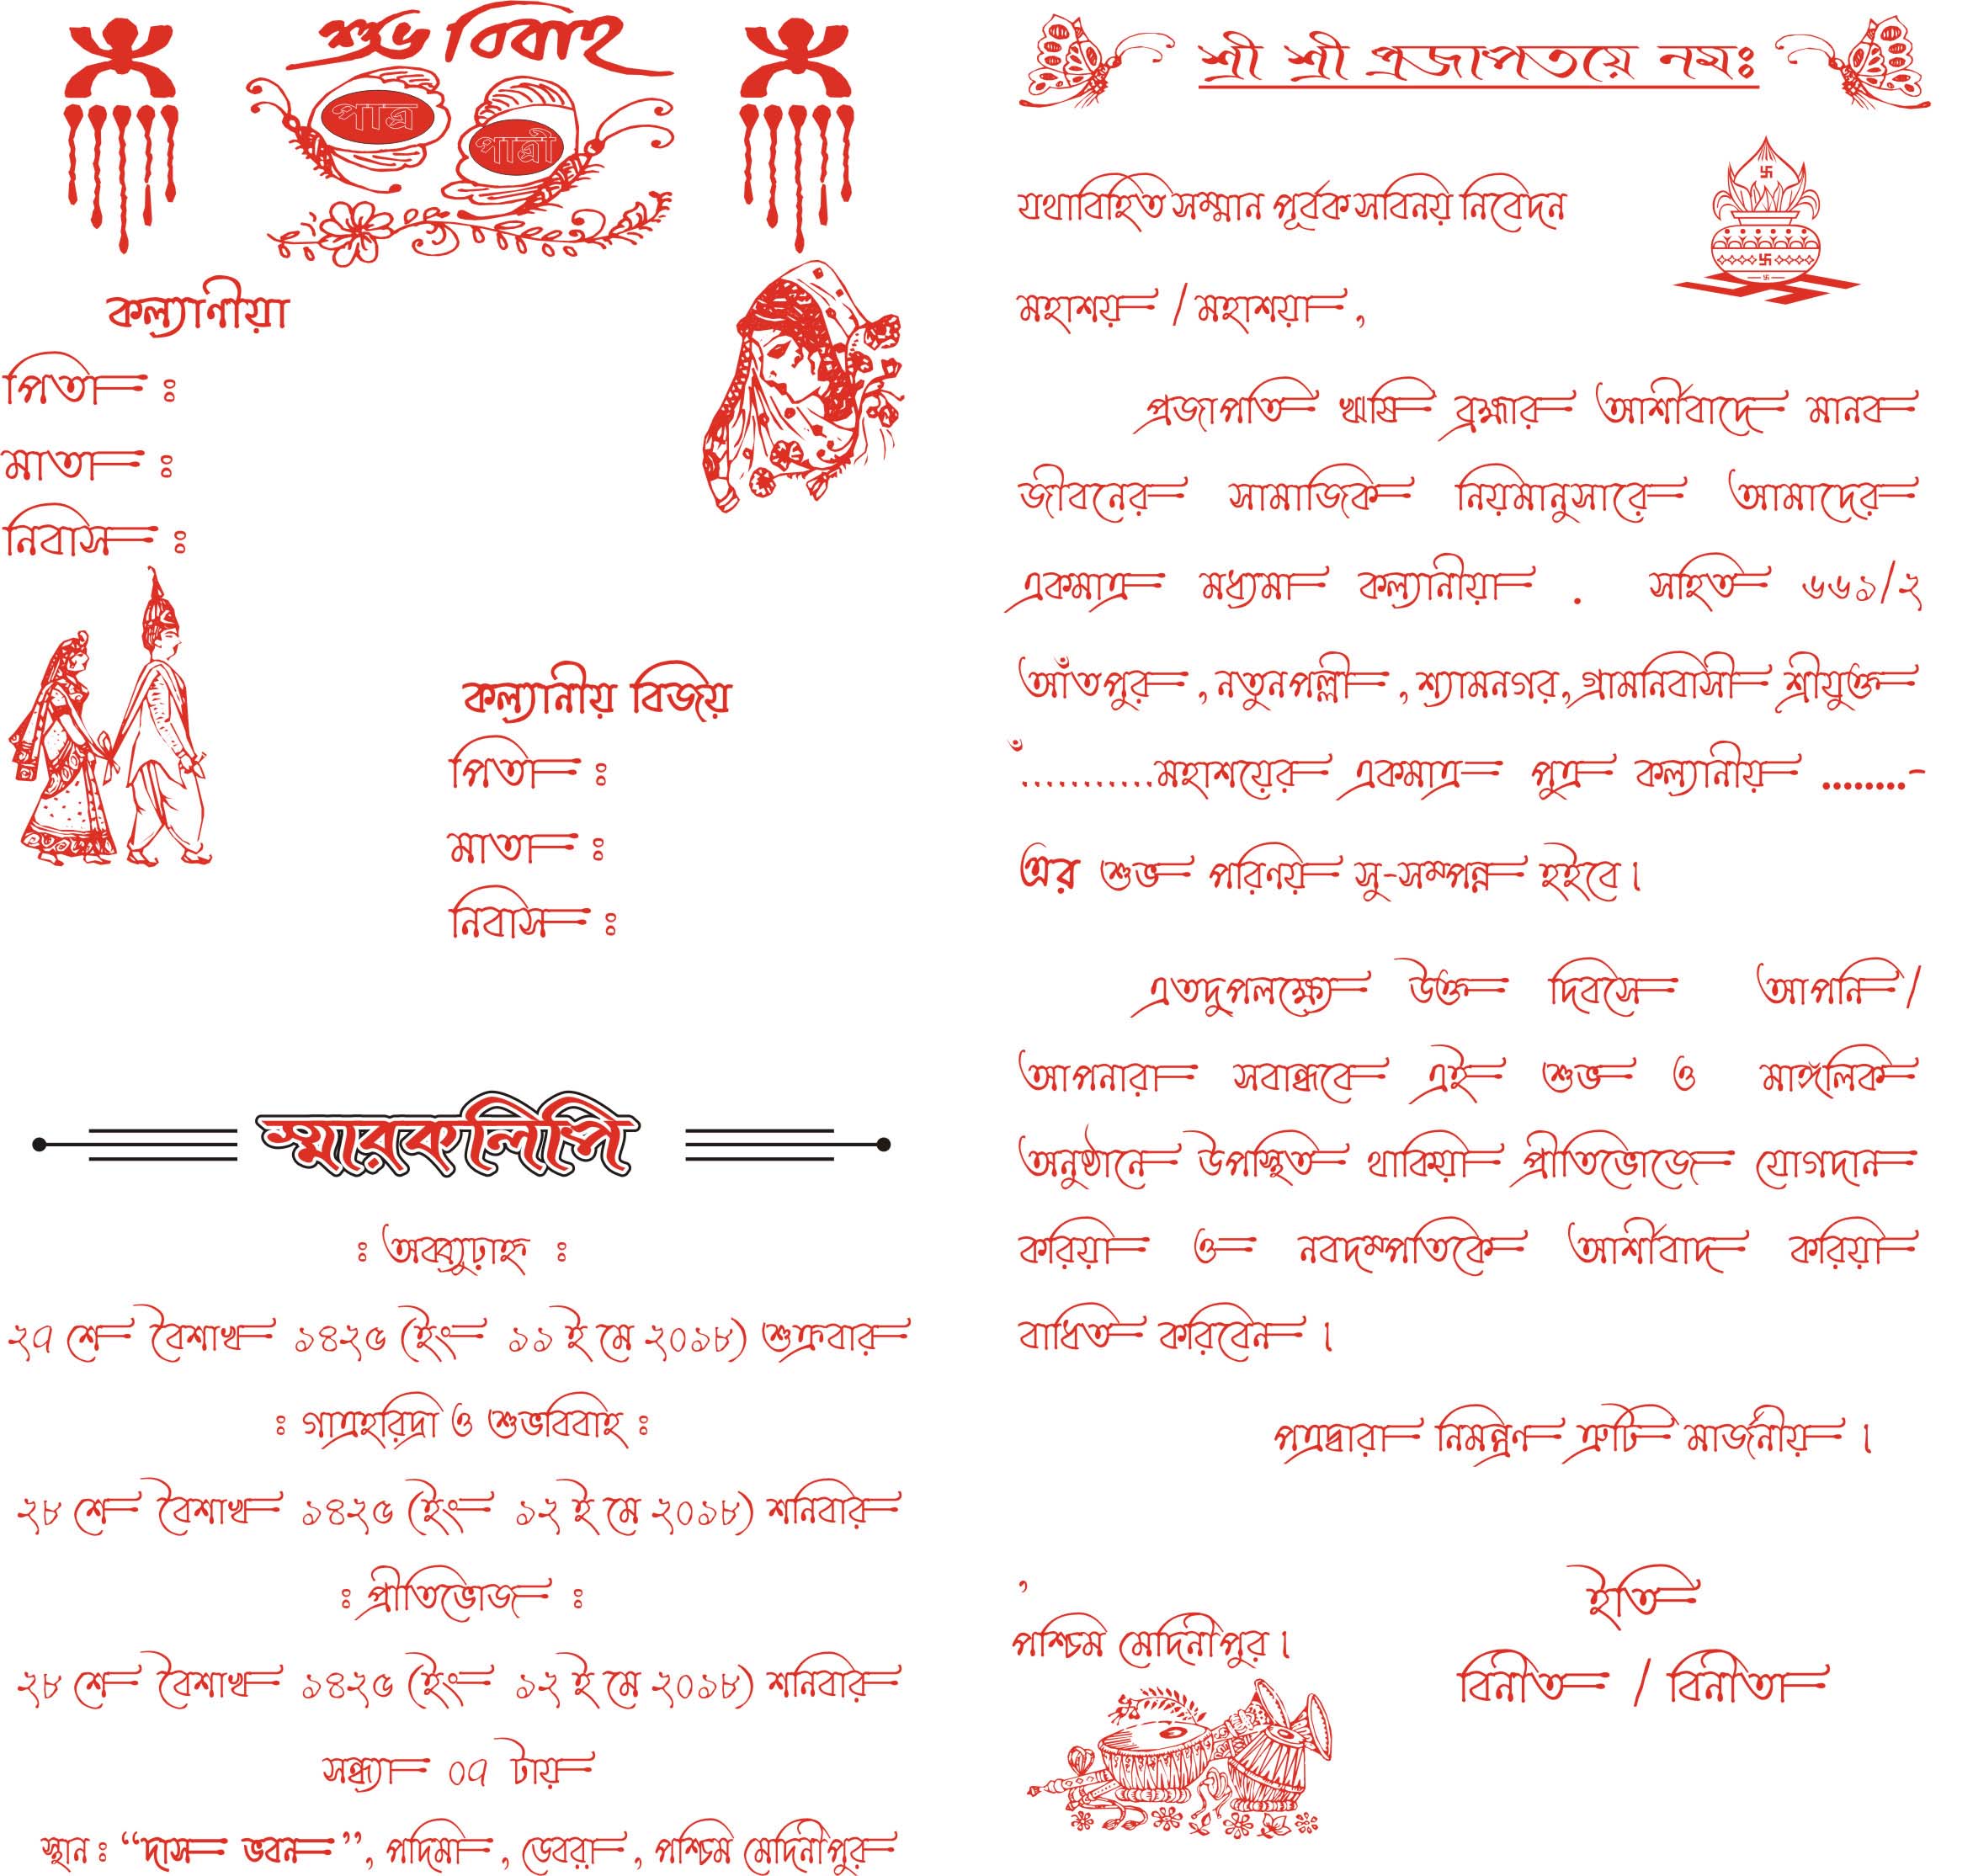 শুভ বিবাহ
পাত্র
পাত্রী
কল্যানীয়া
পিতা ঃ
মাতা ঃ
নিবাস ঃ
কল্যানীয় বিজয়
পিতা ঃ
মাতা ঃ
নিবাস ঃ
স্মারকলিপি
ঃ অবব্যুঢ়াহ্ন ঃ
২৭ শে বৈশাখ ১৪২৫ (ইং ১১ ই মে ২০১৮) শুক্রবার
ঃ গাত্রহরিদ্রা ও শুভবিবাহ ঃ
২৮ শে বৈশাখ ১৪২৫ (ইং ১২ ই মে ২০১৮) শনিবার
ঃ প্রীতিভোজ ঃ
২৮ শে বৈশাখ ১৪২৫ (ইং ১২ ই মে ২০১৮) শনিবার
সন্ধ্যা ০৭ টায়
স্থান ঃ “দাস ভবন”, পদিমা, ডেবরা, পশ্চিম মেদিনীপুর
শ্রী শ্রী প্রজাপতয়ে নমঃ
যথাবিহিত সম্মান পূর্বক সবিনয় নিবেদন
মহাশয় / মহাশয়া ,
প্রজাপতি ঋষি ব্রহ্মার আর্শীবাদে মানব
জীবনের সামাজিক নিয়মানুসারে আমাদের
একমাত্র মধ্যমা কল্যানীয়া . সহিত ৬৬১/২
আঁতপুর , নতুনপল্লী , শ্যামনগর, গ্রামনিবাসী শ্রীযুক্ত
ঁ............মহাশয়ের একমাত্র পুত্র কল্যানীয় ........-
এর শুভ পরিনয় সু-সম্পন্ন হইবে।
এতদুপলক্ষ্যে উক্ত দিবসে আপনি /
আপনারা সবান্ধবে এই শুভ ও মাঙ্গলিক
অনুষ্ঠানে উপস্থিত থাকিয়া প্রীতিভোজে যোগদান
করিয়া ও নবদম্পতিকে আর্শীবাদ করিয়া
বাধিত করিবেন ।
পত্রদ্বারা নিমন্ত্রন ত্রুটি মার্জনীয় ।
,
পশ্চিম মেদিনীপুর।
ইতি
বিনীত / বিনীতা